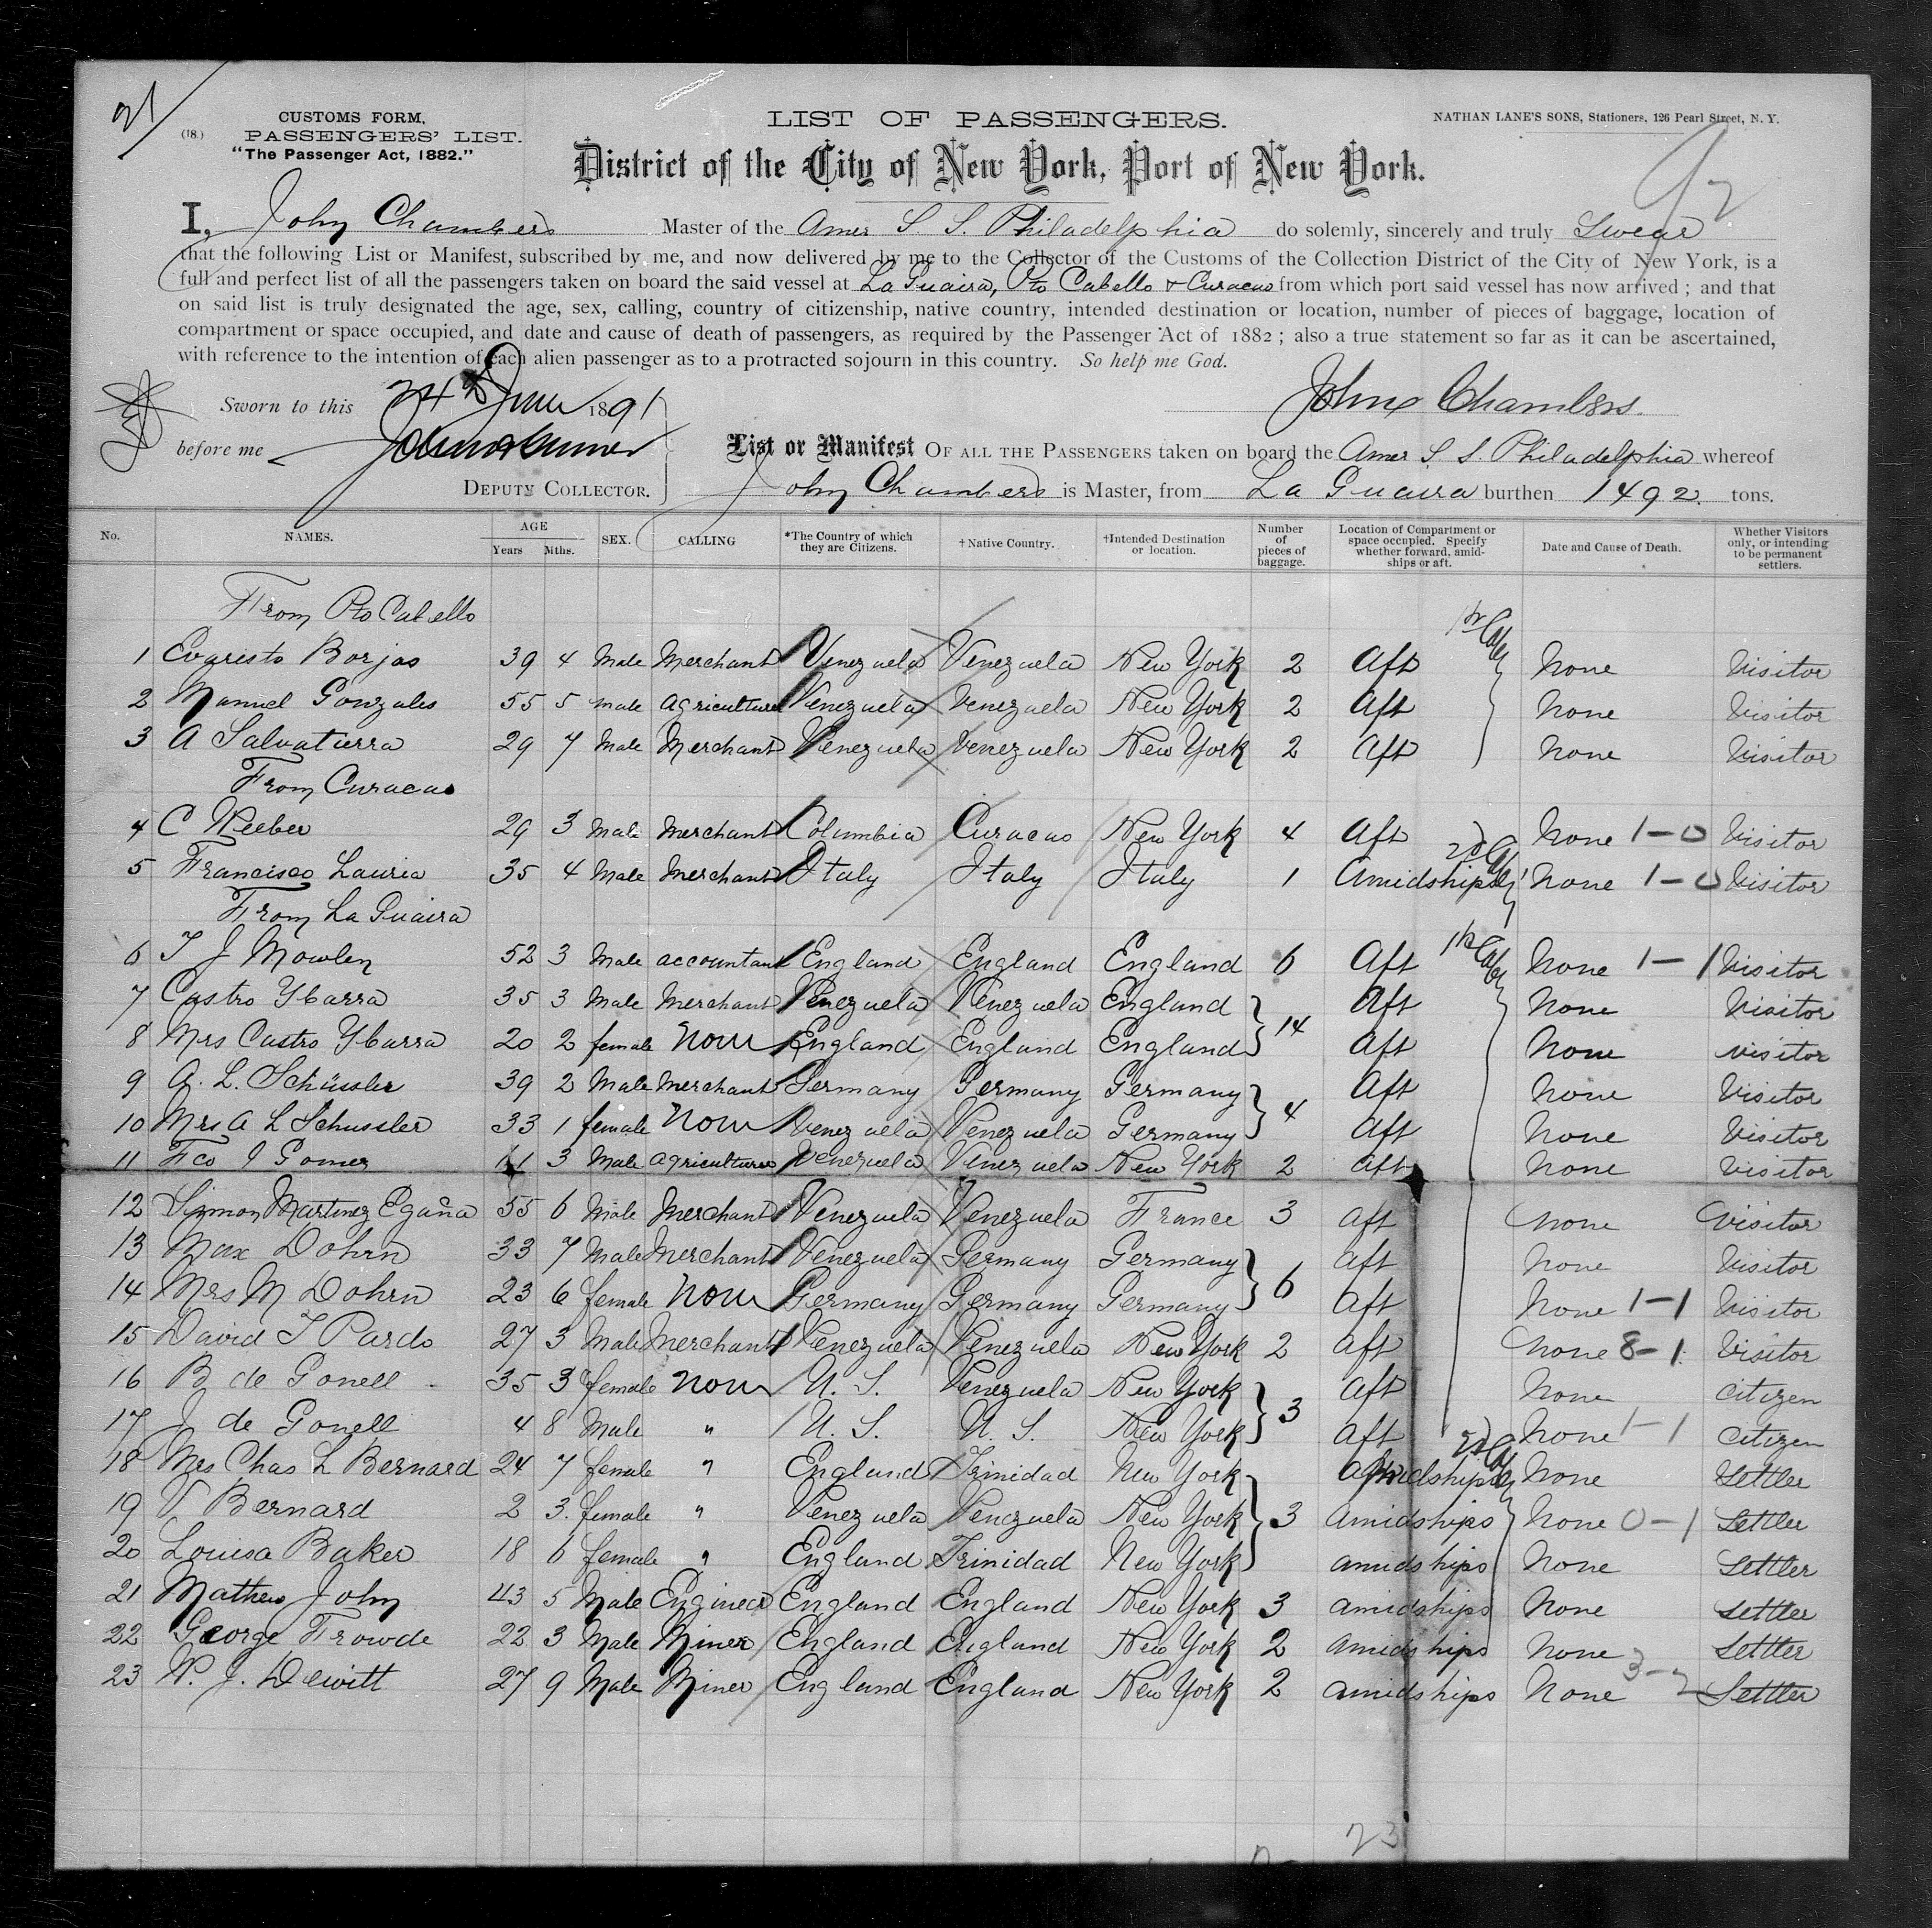 21
(18.)
CUSTOMS FORM,
PASSENGERS' LIST.
"The Passenger Act, 1882."
LIST OF PASSENGERS.
NATHAN LANE'S SONS, Stationers, 126 Pearl Street, N. Y.
District of the City of New York, Port of New York.
I, John Chambers Master of the Amer S S. Philadelphia do solemnly, sincerely and truly Swear
that the following List or Manifest, subscribed by me, and now delivered by me to the Collector of the Customs of the Collection District of the City of New York, is a
full and perfect list of all the passengers taken on board the said vessel at La Guaira, Pto Cabello & Curacao from which port said vessel has now arrived; and that
on said list is truly designated the age, sex, calling, country of citizenship, native country, intended destination or location, number of pieces of baggage, location of
compartment or space occupied, and date and cause of death of passengers, as required by the Passenger Act of 1882; also a true statement so far as it can be ascertained,
with reference to the intention of each alien passenger as to a protracted sojourn in this country. So help me God.
Sworn to this 24th June 1891
John Chambers.
before me
DEPUTY COLLECTOR.
List or Manifest OF ALL THE PASSENGERS taken on board the Amer S. S. Philadelphia whereof
John Chambers is Master, from La Guaira burthen 1492. tons.
No. NAMES. AGE Years Mths. SEX. CALLING *The Country of which they are Citizens. †Native Country. †Intended Destination or location. Number of pieces of baggage. Location of Compartment or space occupied. Specify whether forward, amidships or aft. Date and Cause of Death. Whether Visitors only, or intending to be permanent settlers.
From Pto Cabello
1 Evaristo Borjas 39 4 Male Merchant Venezuela Venezuela New York 2 Aft None Visitor
2 Manuel Gonzales 55 5 male agriculture Venezuela Venezuela New York 2 Aft None Visitor
3 A Salvatierra 29 7 Male Merchant Venezuela Venezuela New York 2 Aft None Visitor
From Curacao
4 C Weeber 29 3 Male Merchant Columbia Curacao New York 4 Aft None 1-0 Visitor
5 Francisco Lauria 35 4 Male Merchant Italy Italy Italy 1 Amidships None 1-0 Visitor
From La Guaira
6 T J Mowlen 52 3 Male accountant England England England 6 Aft None 1-1 Visitor
7 Castro Ybarra 35 3 Male Merchant Venezuela Venezuela England Aft None Visitor
8 Mrs Castro Ybarra 20 2 female None England England England 14 Aft None visitor
9 A. L. Schüssler 39 2 Male Merchant Germany Germany Germany Aft None Visitor
10 Mrs A L Schussler 33 1 female None Venezuela Venezuela Germany 4 Aft None Visitor
11 Fco I Gomez 3 Male agriculture Venezuela Venezuela New York 2 aft None visitor
12 Simon Martinez Egaña 55 6 Male Merchant Venezuela Venezuela France 3 aft None Visitor
13 Max Dohrn 33 7 Male Merchant Venezuela Germany Germany Aft None Visitor
14 Mrs M Dohrn 23 6 female None Germany Germany Germany 6 Aft None 1-1 Visitor
15 David T Pardo 27 3 Male Merchant Venezuela Venezuela New York 2 Aft None 8-1 Visitor
16 B de Gonell 35 3 female None U. S. Venezuela New York Aft None Citizen
17 J de Gonell 4 8 Male " U. S. U. S. New York 3 Aft None 1-1 Citizen
18 Mrs Chas L Bernard 24 7 female " England Trinidad New York Amidships None Settler
19 V Bernard 2 3. female " Venezuela Venezuela New York 3 Amidships None 0-1 Settler
20 Louisa Baker 18 6 female " England Trinidad New York amidships None Settler
21 Mathew John 43 5 Male Engineer England England New York 3 amidships None Settler
22 George Frowde 22 3 Male Miner England England New York 2 amidships None Settler
23 W. J. Dewitt 27 9 Male Miner England England New York 2 amidships None 3-2 Settler
23